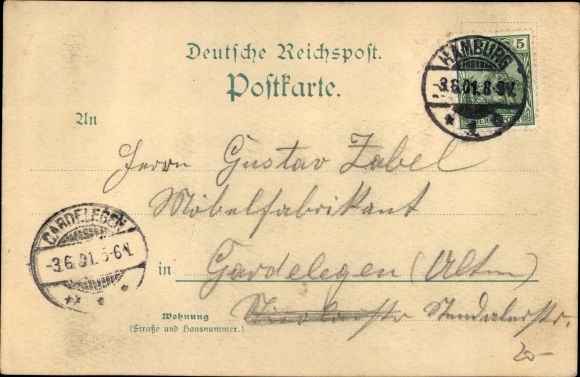 Deutsche Reichspost.
Postkarte.
5
HAMBURG
3.6.01.8-9V.
* 1 e
An
Herrn Gustav Zabel
Möbelfabrikant
in Gardelegen (Altm)
Stendalerstr.
Wohnung
(Straße und Hausnummer.)
GARDELEGEN
-3.6.01.5-6N.
20-